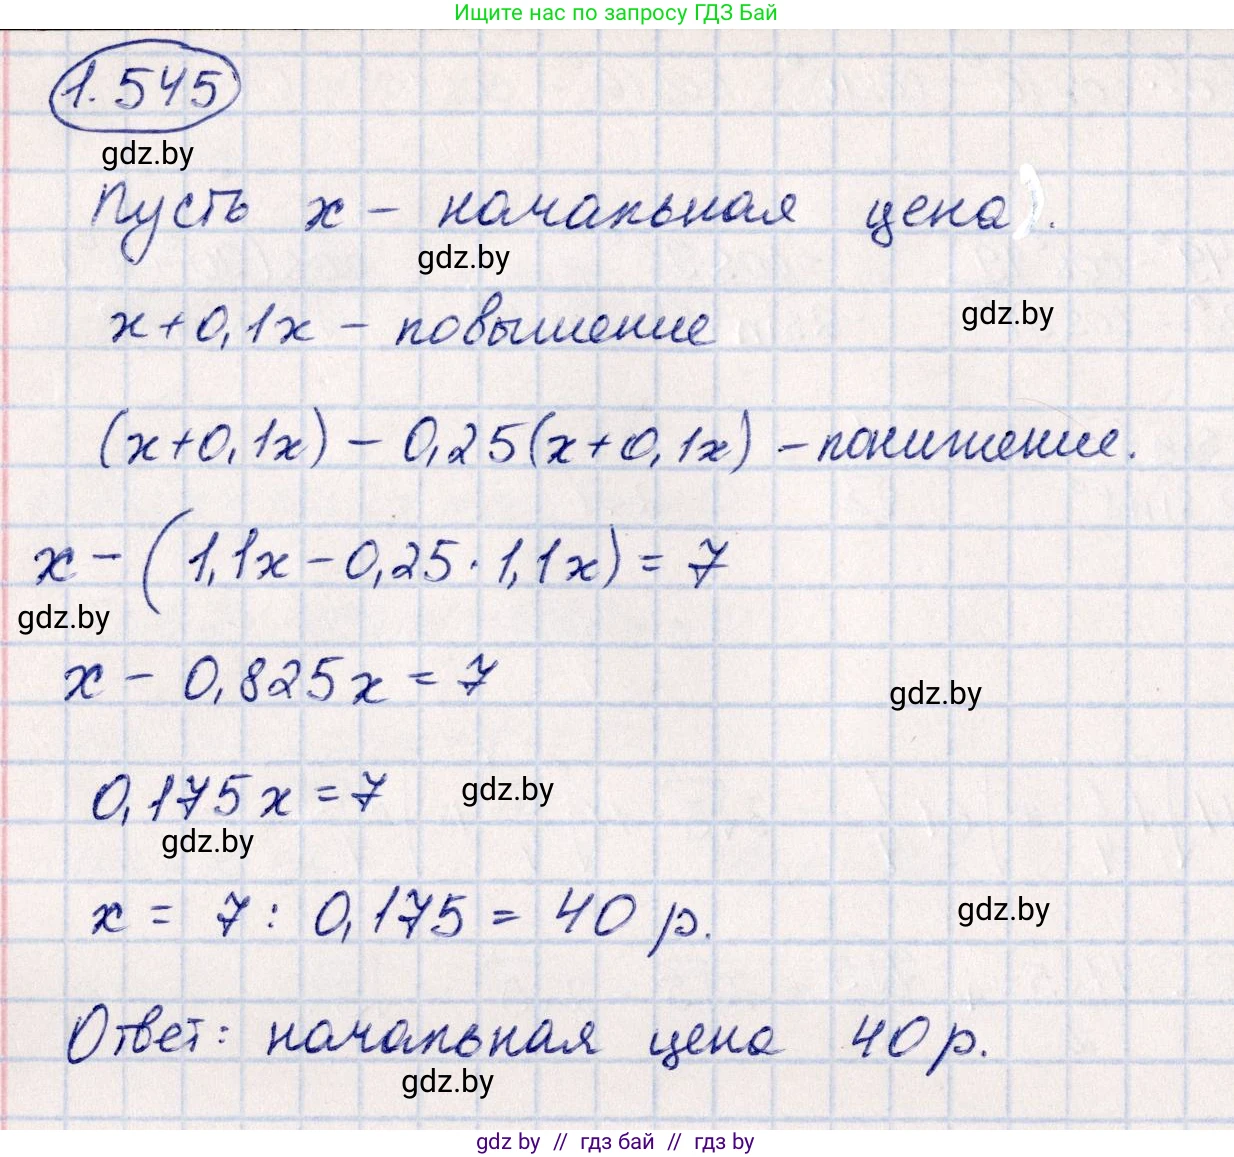 Ищите нас по запросу ГДЗ Бай
1.545
gdz.by
Пусть x – начальная цена.
gdz.by
gdz.by
x+0,1x – повышение
(x+0,1x) – 0,25(x+0,1x) – понижение.
x – (1,1x – 0,25·1,1x) = 7
gdz.by
x – 0,825x = 7
gdz.by
0,175x = 7
gdz.by
gdz.by
x = 7 : 0,175 = 40 р.
gdz.by
Ответ: начальная цена 40 р.
gdz.by
gdz by // гдз бай // гдз by